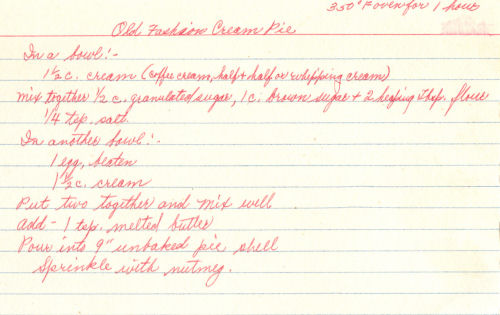 350°F oven for 1 hour
Old Fashion Cream Pie
In a bowl:-
1 1/2 c. cream (coffee cream, half + half or whipping cream)
mix together 1/2 c. granulated sugar, 1 c. brown sugar + 2 heaping tbsp. flour
1/4 tsp. salt.
In another bowl:-
1 egg, beaten
1 1/2 c. cream
Put two together and mix well
add - 1 tsp. melted butter
Pour into 9" unbaked pie shell
Sprinkle with nutmeg.